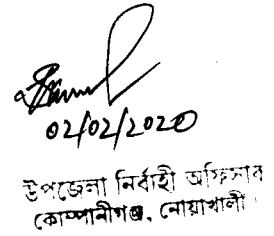 02/02/2020
উপজেলা নির্বাহী অফিসার
কোম্পানীগঞ্জ, নোয়াখালী